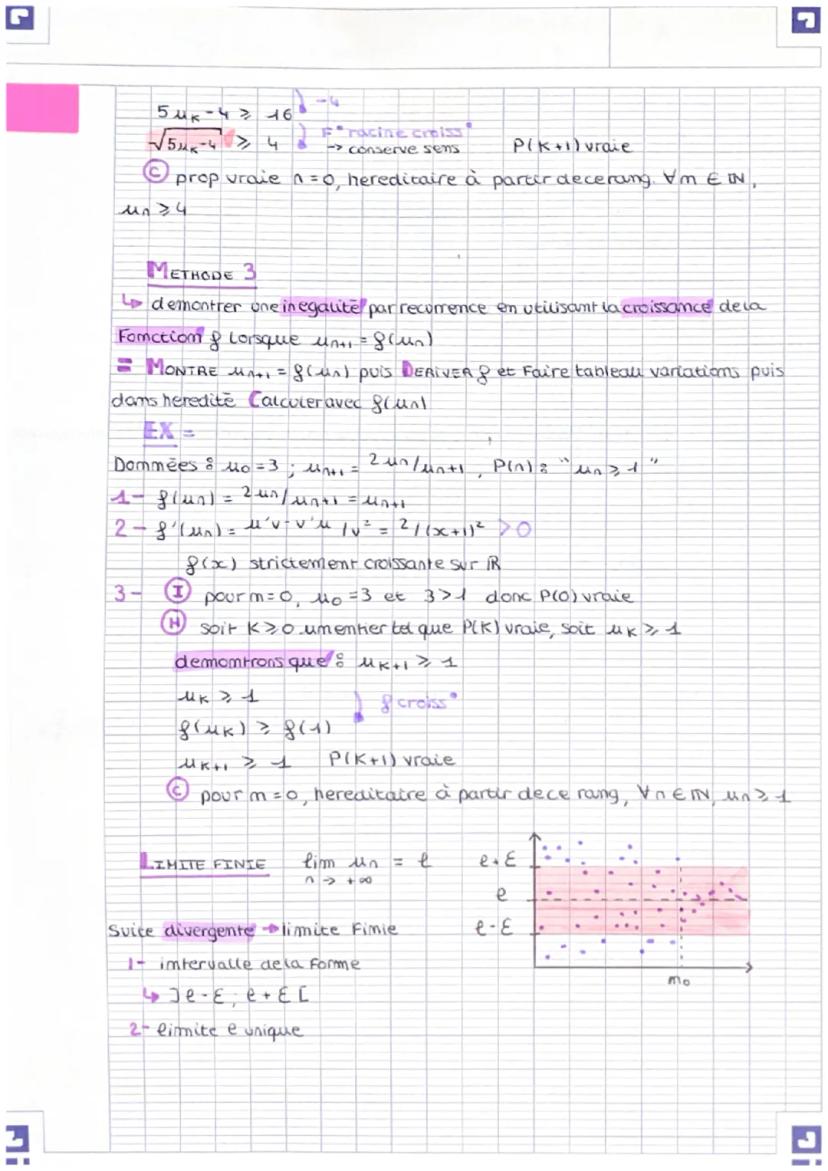 5uK-4 ⩾ 16 -4
√5uK-4 ⩾ 4 F° racine croiss° -> conserve sens P(K+1) vraie
C prop vraie n=0, hereditaire à partir de ce rang. ∀m ∈ IN,
un ⩾ 4
METHODE 3
↳ demontrer une inegalité par recurrence en utilisant la croissance de la
Fonction f lorsque un+1 = f(un)
= MONTRE un+1 = f(un) puis DERIVER f et Faire tableau variations puis
dans heredité Calculer avec f(un)
EX =
Données : u0 = 3 ; un+1 = 2un/un+1 , P(n) : "un ⩾ 1"
1- f(un) = 2un/un+1 = un+1
2- f'(un) = u'v-v'u /v² = 2/(x+1)² >0
f(x) strictement croissante sur IR
3- I pour m=0, u0=3 et 3>1 donc P(0) vraie
H soit K⩾0 un entier tel que P(K) vraie, soit uK ⩾ 1
demontrons que : uK+1 ⩾ 1
uK ⩾ 1
f(uK) ⩾ f(1) f croiss°
uK+1 ⩾ 1 P(K+1) vraie
C pour m=0, hereditaire à partir de ce rang, ∀n ∈ IN, un ⩾ 1
LIMITE FINIE lim un = l
n -> +∞
l+ε
l
l-ε
m0
Suite divergente → limite Finie
1- intervalle de la Forme
↳ ]l-ε; l+ε[
2- limite l unique